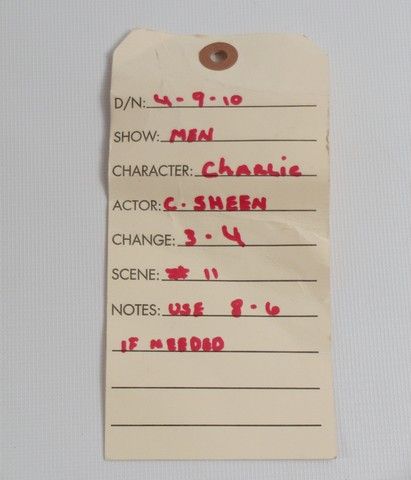 D/N: 4-9-10
SHOW: MEN
CHARACTER: Charlie
ACTOR: C. SHEEN
CHANGE: 3-4
SCENE: # 11
NOTES: USE 8-6
IF NEEDED